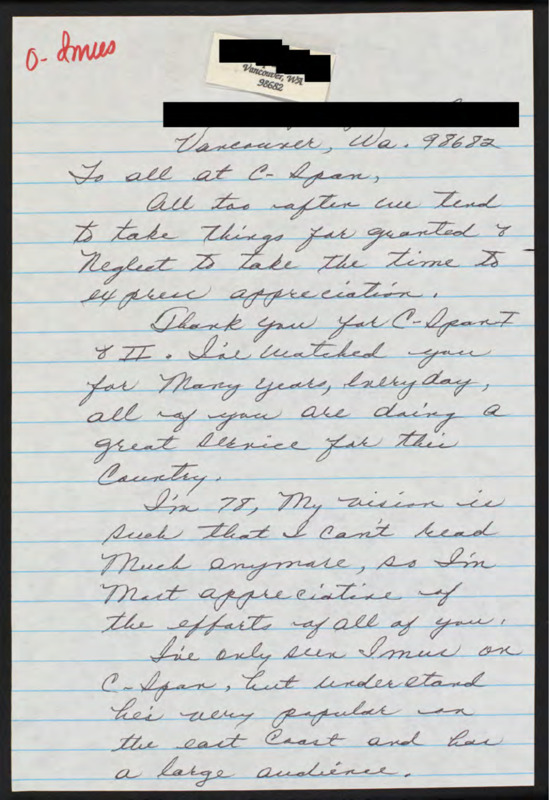 O- Imus
Vancouver, WA
98682
Vancouver, Wa. 98682
To all at C-Span,
All too often we tend
to take things for granted &
neglect to take the time to
express appreciation.
Thank you for C-Span I
& II. I've watched you
for many years, everyday,
all of you are doing a
great service for this
Country.
I'm 78, my vision is
such that I can't read
much anymore, so I'm
most appreciative of
the efforts of all of you.
I've only seen Imus on
C-Span, but understand
he's very popular on
the east coast and has
a large audience.